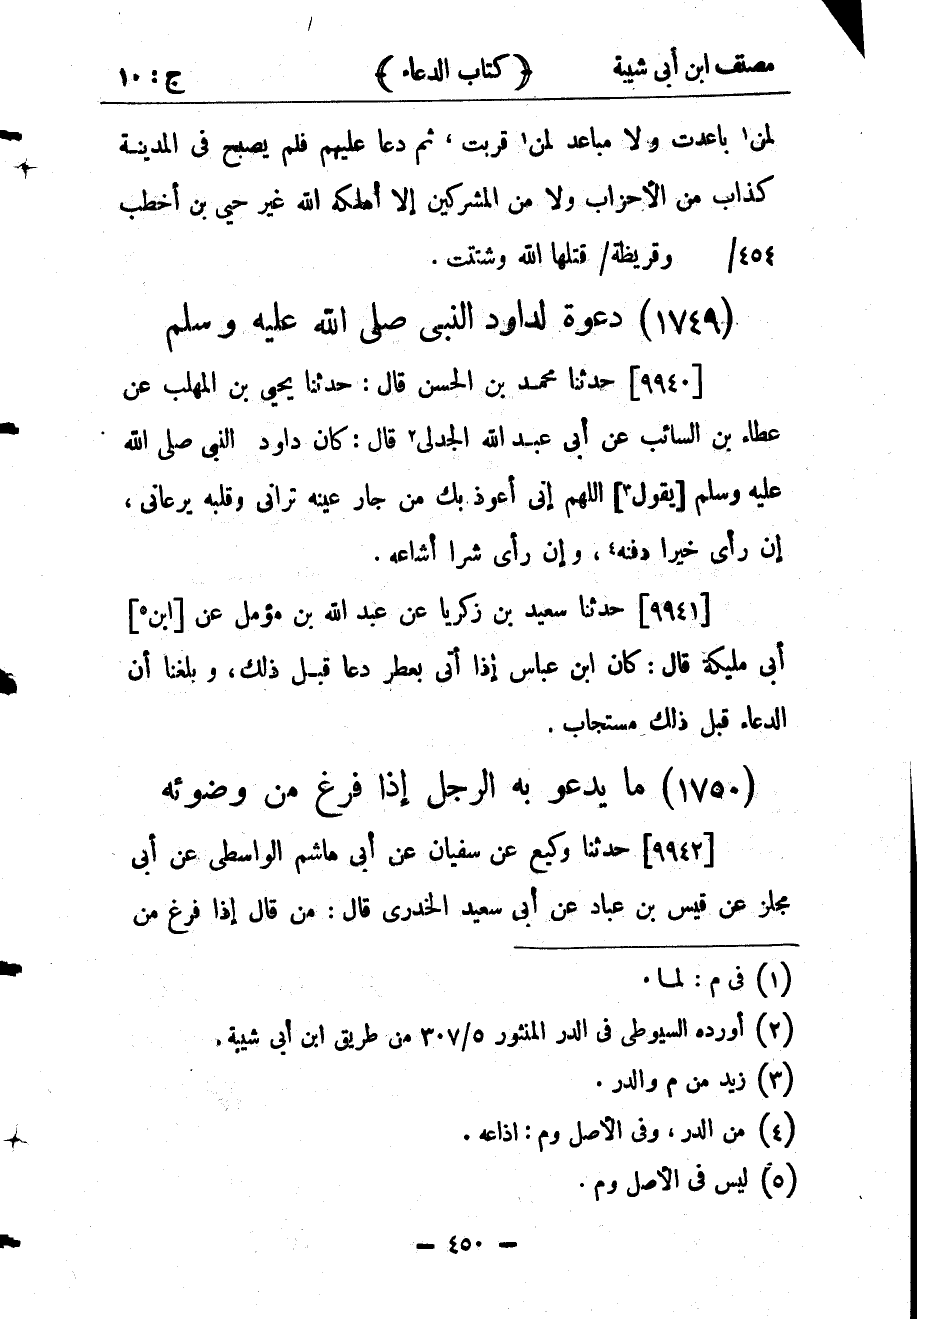 مصنف ابن أبى شيبة ﴿ كتاب الدعاء ﴾ ج : ١٠
لمن١ باعدت ولا مباعد لمن١ قربت ، ثم دعا عليهم فلم يصبح فى المدينة
كذاب من الأحزاب ولا من المشركين إلا أهلكه الله غير حيي بن أخطب
٤٥٤/ وقريظة/ قتلها الله وشتتت .
(١٧٤٩) دعوة لداود النبى صلى الله عليه وسلم
[٩٩٤٠] حدثنا محمد بن الحسن قال : حدثنا يحيى بن المهلب عن
عطاء بن السائب عن أبى عبد الله الجدلى٢ قال : كان داود النبى صلى الله
عليه وسلم [يقول٣] اللهم إنى أعوذ بك من جار عينه ترانى وقلبه يرعانى ،
إن رأى خيرا دفنه٤ ، وإن رأى شرا أشاعه .
[٩٩٤١] حدثنا سعيد بن زكريا عن عبد الله بن مؤمل عن [ابن٥]
أبى مليكة قال : كان ابن عباس إذا أتى بعطر دعا قبل ذلك ، و بلغنا أن
الدعاء قبل ذلك مستجاب .
(١٧٥٠) ما يدعو به الرجل إذا فرغ من وضوئه
[٩٩٤٢] حدثنا وكيع عن سفيان عن أبى هاشم الواسطى عن أبى
مجلز عن قيس بن عباد عن أبى سعيد الخدرى قال : من قال إذا فرغ من
(١) فى م : لما .
(٢) أورده السيوطى فى الدر المنثور ٣٠٧/٥ من طريق ابن أبى شيبة .
(٣) زيد من م والدر .
(٤) من الدر ، وفى الأصل وم : اذاعه .
(٥) ليس فى الأصل وم .
— ٤٥٠ —